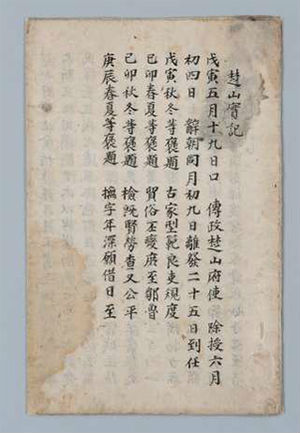 楚山實記
戊寅五月十九日口 傳政楚山府使 除授六月
初四日 辭朝同月初九日離發二十五日到任
戊寅秋冬等褒題 古家型範良吏規度
己卯春夏等褒題 貿俗丕變庚至鄒魯
己卯秋冬等褒題 檢既賢勞查又公平
庚辰春夏等褒題 撫字年深願借日至